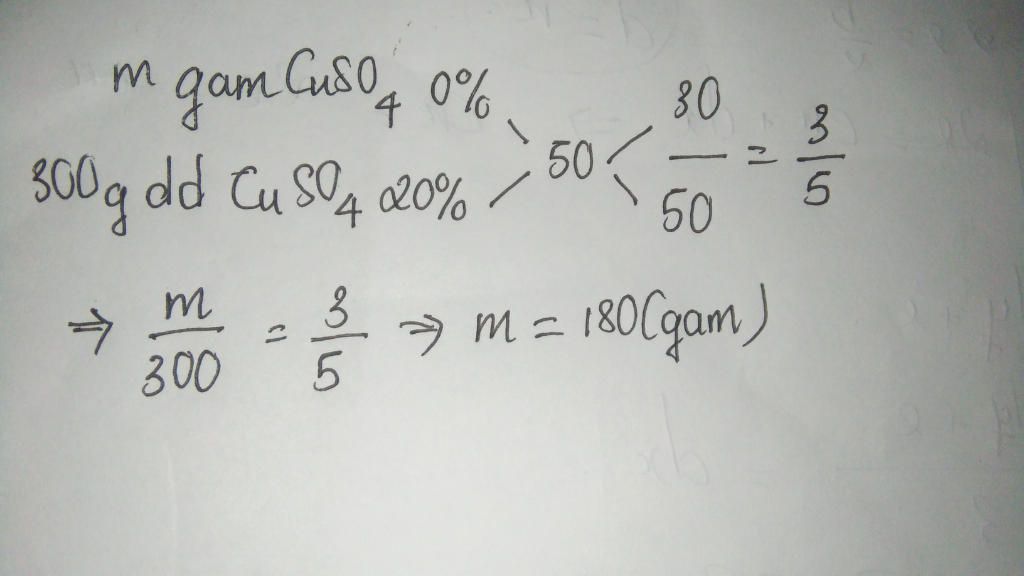 m gam CuSO₄ 0%
300g dd CuSO₄ 20%
50
30/50 = 3/5
⇒ m/300 = 3/5 ⇒ m = 180 (gam)